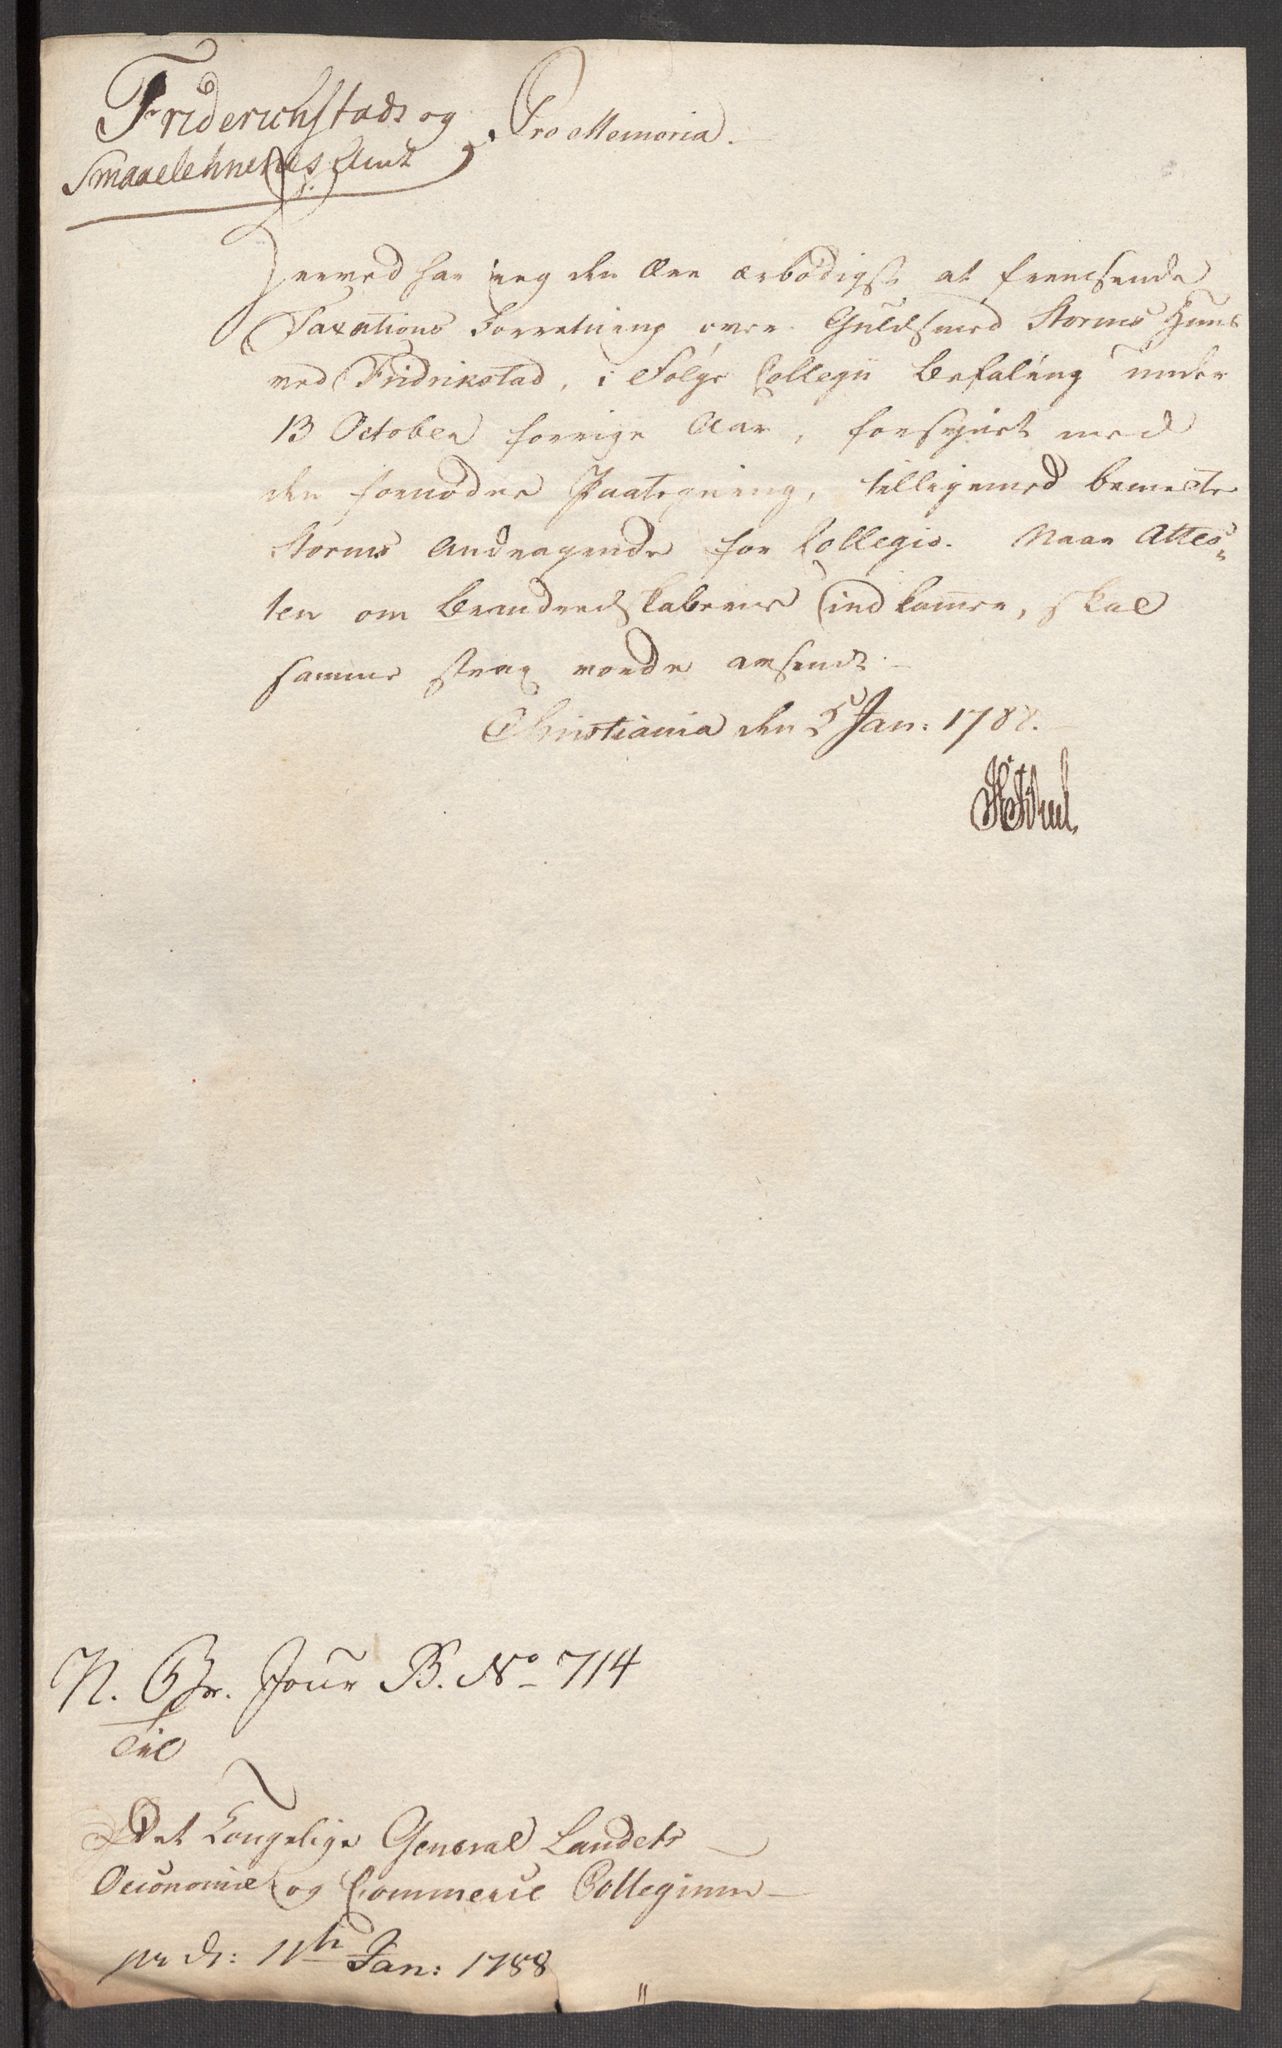 Friderichstads og
Smaaelehnenes Amt
Pro Memoria.
Herved har jeg den Ære ærbødigst at fremsende
Taxations Forretning over Guldsmed Storms Huus
ved Fridrikstad, i Følge Collegii Befaling under
13 October forrige Aar, forsynet med
den fornødne Paategning, tilligemed bemeldte
Storms Andragende for Collegio. Naar Attes„
ten om Brandredskaberne indkommer, skal
samme strax vorde arsendt.
Christiania den 5 Jan: 1788.
N. Jour B. No 714
Til
Det Kongelige General Landets
Oeconomie og Commerce Collegium
pr d: 11th Jan: 1788